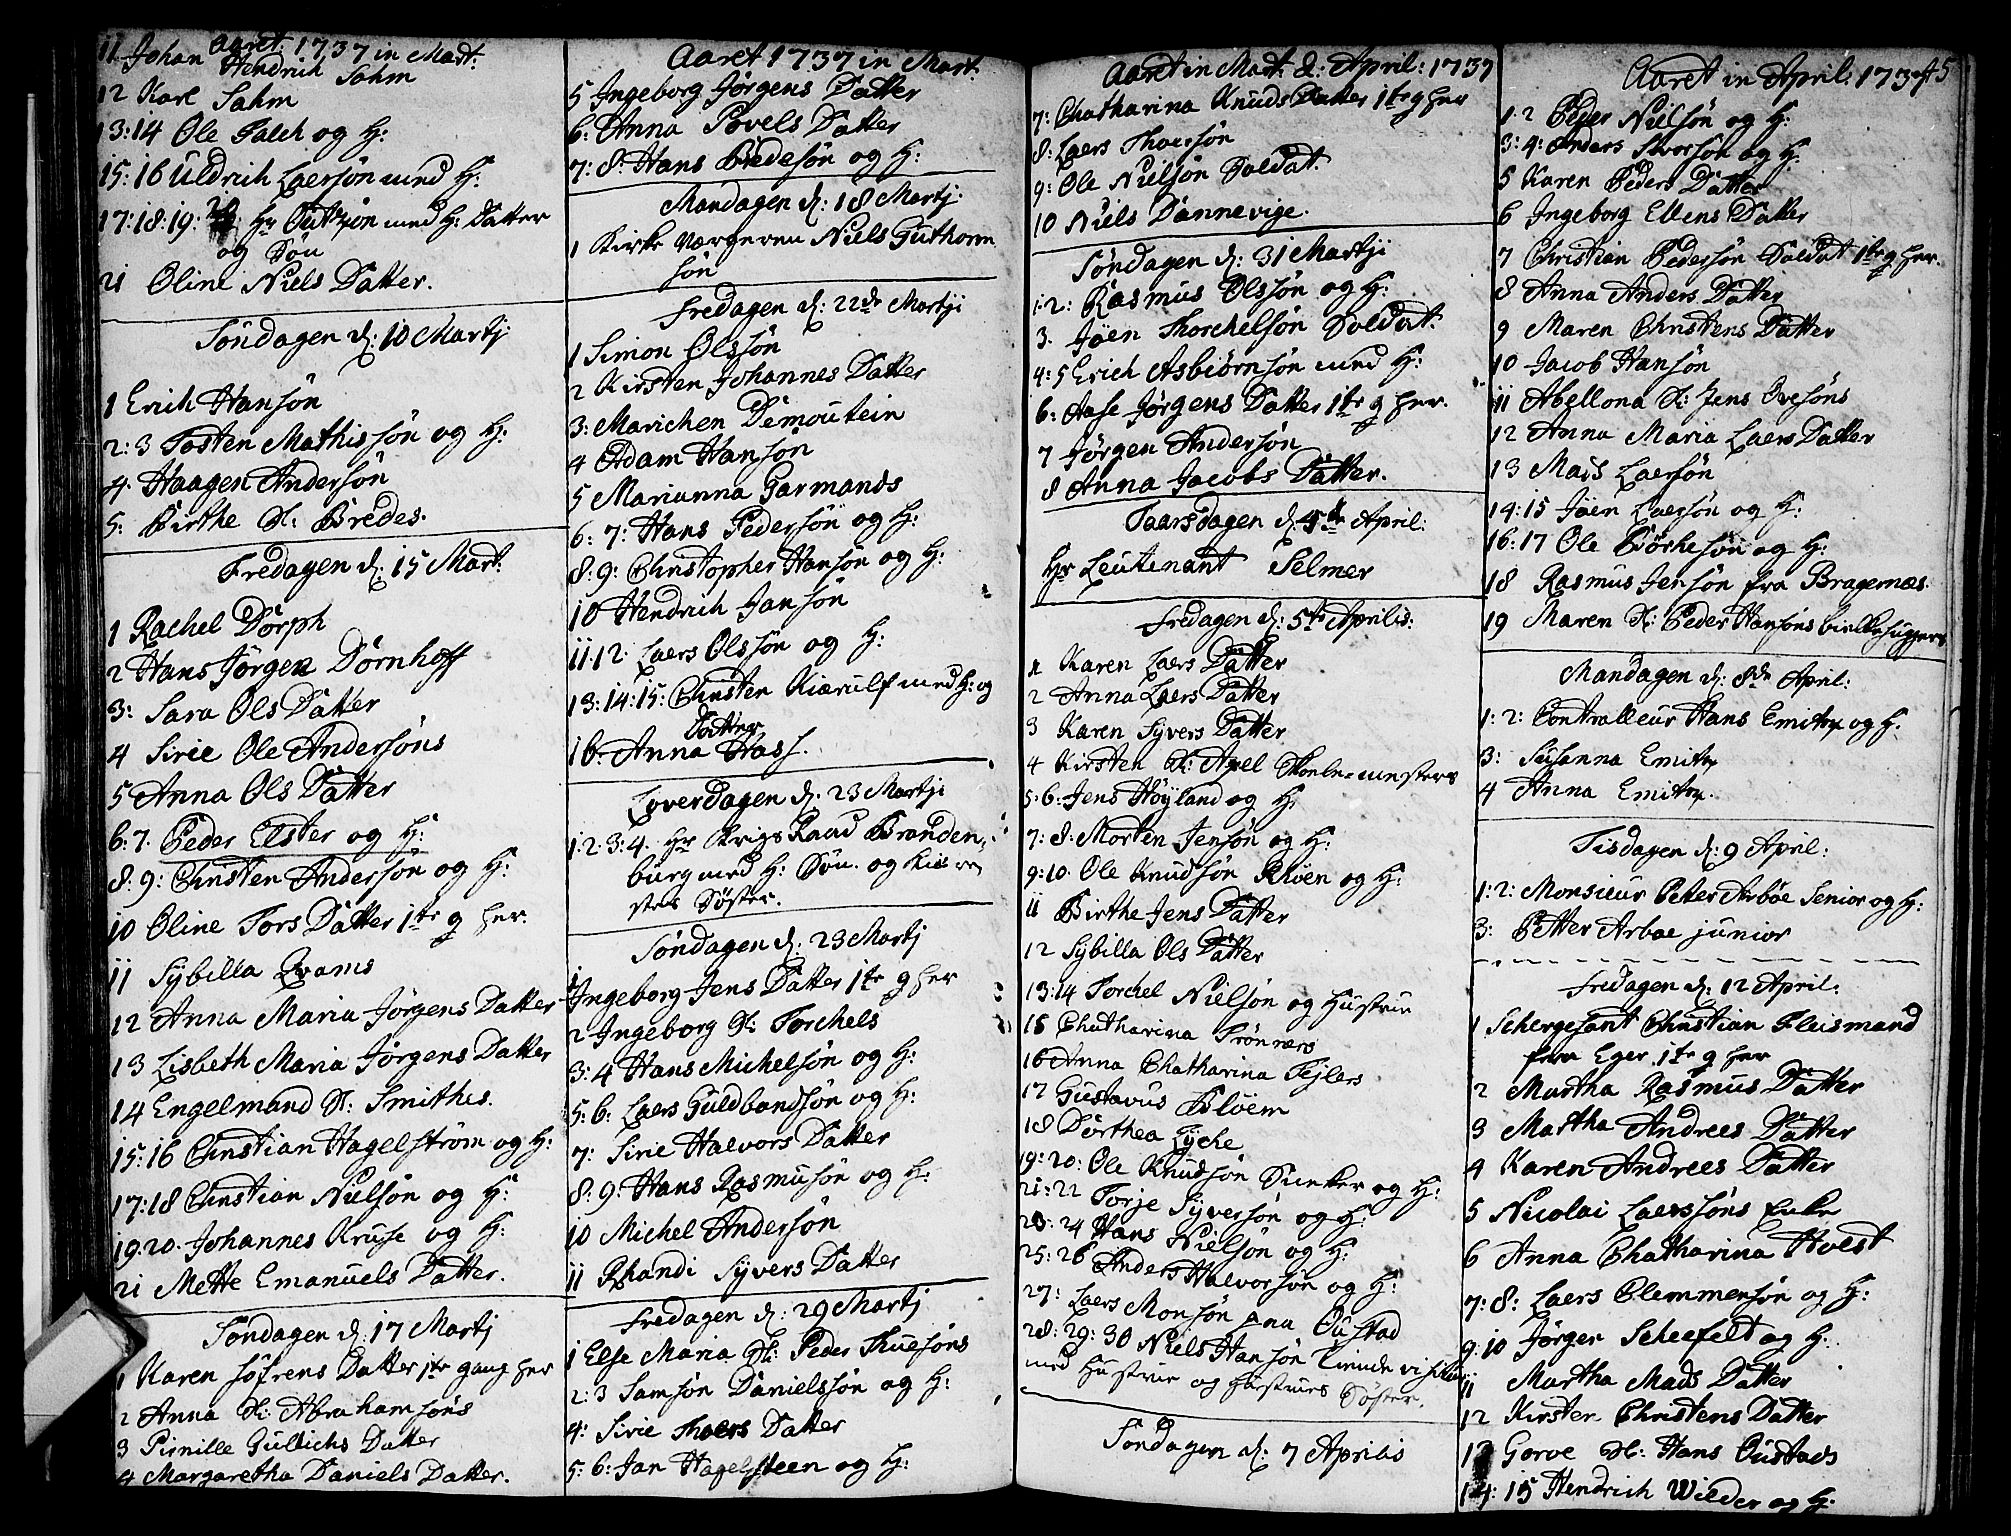 Aaret 1737 in Mart:
11 Johan Hendrich Sahm
12 Karl Sahm
13: 14 Ole Falch og H:
15: 16 Uldrich Laersøn med H:
17: 18: 19: 20: Hr med H: Datter
og Søn
21 Oline Niels Datter.
Søndagen d: 10 Martj
1 Erich Hansøn
2: 3 Tosten Mathissøn og H:
4. Haagen Andersøn
5: Birthe Sl: Bredes.
Fredagen d: 15 Mart:
1 Rachel Dorph
2 Hans Jørgen Dørnhoff
3: Sara Ols Datter
4 Sirie Ole Andersøns
5 Anna Ols Datter
6: 7. Peder Elster og H:
8: 9: Christen Andersøn og H:
10 Oline Tors Datter 1te g her.
11 Sybilla Qvams
12 Anna Maria Jørgens Datter
13 Lisbeth Maria Jørgens Datter
14 Engelmand Sl: Smithes.
15: 16 Christian Hagelstrøm og H:
17: 18 Christian Nielsøn og H:
19 20. Johannes Kruse og H:
21 Mette Emanuels Datter.
Søndagen d: 17 Martj
1 Karen Søfrens Datter 1te gang her
2 Anna Sl: Abrahamsøns
3 Pirnille Gullichs Datter
4 Margaretha Daniels Datter.
Aaret 1737 in Mart.
5 Ingeborg Jørgens Datter
6: Anna Povels Datter
7: 8: Hans Bredesøn og H:
Mandagen d: 18 Martj:
1 Kirke Værgeren Niels Guthorm
søn
Fredagen d: 22de Martji
1 Simon Olssøn
2 Kirsten Johannes Datter
3: Marichen Demoutein
4 Adam Hansøn
5 Marianna Garmands
6: 7: Hans Pedersøn og H:
8: 9: Christopher Hansøn og H:
10 Hendrich Jansøn
11: 12: Laers Olssøn og H:
13: 14: 15: Christen Kiærulf med H: og
Datter
16: Anna Hass.
Løverdagen d: 23 Martji
1: 2: 3: 4. Hr Krigs Raad Branden-
burg med H: Søn. og
Søster.
Søndagen d: 23 Martj
1 Ingeborg Jens Datter 1te g her
2 Ingeborg Sl: Torchels
3: 4 Hans Michelsøn og H:
5: 6: Laers Guldbandsøn og H:
7: Sirie Halvors Datter
8: 9: Hans Rasmusøn og H:
10 Michel Andersøn
11 Rhandi Syvers Datter
Fredagen d: 29 Martj
1 Else Maria Sl: Peder Thuesøns
2: 3 Samsøn Danielssøn og H:
4: Sirie Thoers Datter
5: 6: Jan Hagelsteen og H:
Aaret in Mart: & April: 1737
7: Chatharina Knuds Datter 1te g her
8: Laers Thoersøn
9: Ole Nielsøn Soldat.
10 Niels Dannevige.
Søndagen d: 31 Martji
1: 2: Rasmus Olssøn og H:
3. Joen Thorchelsøn Soldat.
4: 5 Erich Asbiørnsøn med H:
6: Aase Jørgens Datter 1te g her.
7 Jørgen Andersøn
8 Anna Jacobs Datter.
Taarsdagen d: 4de April:
Hr Leutenant Selmer
Fredagen d: 5te Aprilis:
1 Karen Laers Datter
2 Anna Laers Datter
3 Karen Syvers Datter
4 Kirsten Sl: Axel Skolemesters
5: 6: Jens Høyland og H:
7: 8: Morten Jensøn og H:
9: 10. Ole Knudsøn og H:
11 Birthe Jens Datter
12 Sybilla Ols Datter
13: 14 Torchel Nielsøn og Hustrue
15 Chatharina Trønnærs
16 Anna Chatharina Tejlers
17 Gustavus Bløem
18 Dorthea Lyche
19: 20: Ole Knudsøn Suncker og H:
21: 22 Torje Syversøn og H:
23: 24 Hans Nielsøn og H:
25: 26 Anders Halvorsøn og H:
27: Laers Monsøn paa Oustad
28: 29: 30 Niels Hansøn
med Hustrue og Hustrues Søster.
Søndagen d: 7 Aprilis
Aaret in April: 1737 45
1: 2 Peder Nielsøn og H:
3: 4: Anders Iversøn og H:
5 Karen Peders Datter
6 Ingeborg Ellens Datter
7 Christian Pedersøn Soldat 1te g her.
8 Anna Anders Datter
9 Maren Christens Datter
10 Jacob Hansøn
11 Abellona Sl: Jens Ovesøns
12 Anna Maria Laers Datter
13 Mads Laersøn
14: 15 Joen Laersøn og H:
16: 17 Ole Børchesøn og H:
18 Rasmus Jensøn fra Bragernæs.
19 Maren Sl: Peder Hansøns
Mandagen d: 8de April:
1: 2: Controlleur Hans Emitry og H.
3: Susanna Emitry
4 Anna Emitry.
Tisdagen d: 9 April:
1: 2: Monsieur Petter Arbøe Senior og H:
3: Petter Arboe junior
Fredagen d: 12 April:
1 Schergesant Christian Fleismand
fra Eger. 1te g her
2 Martha Rasmus Datter
3 Martha Andrees Datter
4 Karen Andrees Datter
5 Nicolai Laerssøns Enke
6 Anna Chatharina Holst
7: 8: Laers Clemmensøn og H:
9: 10 Jørgen Scheefelt og H:
11 Martha Mads Datter
12 Kirsten Christens Datter
13 Gorve Sl: Hans Oustads
14: 15 Hendrich Wilder og H: